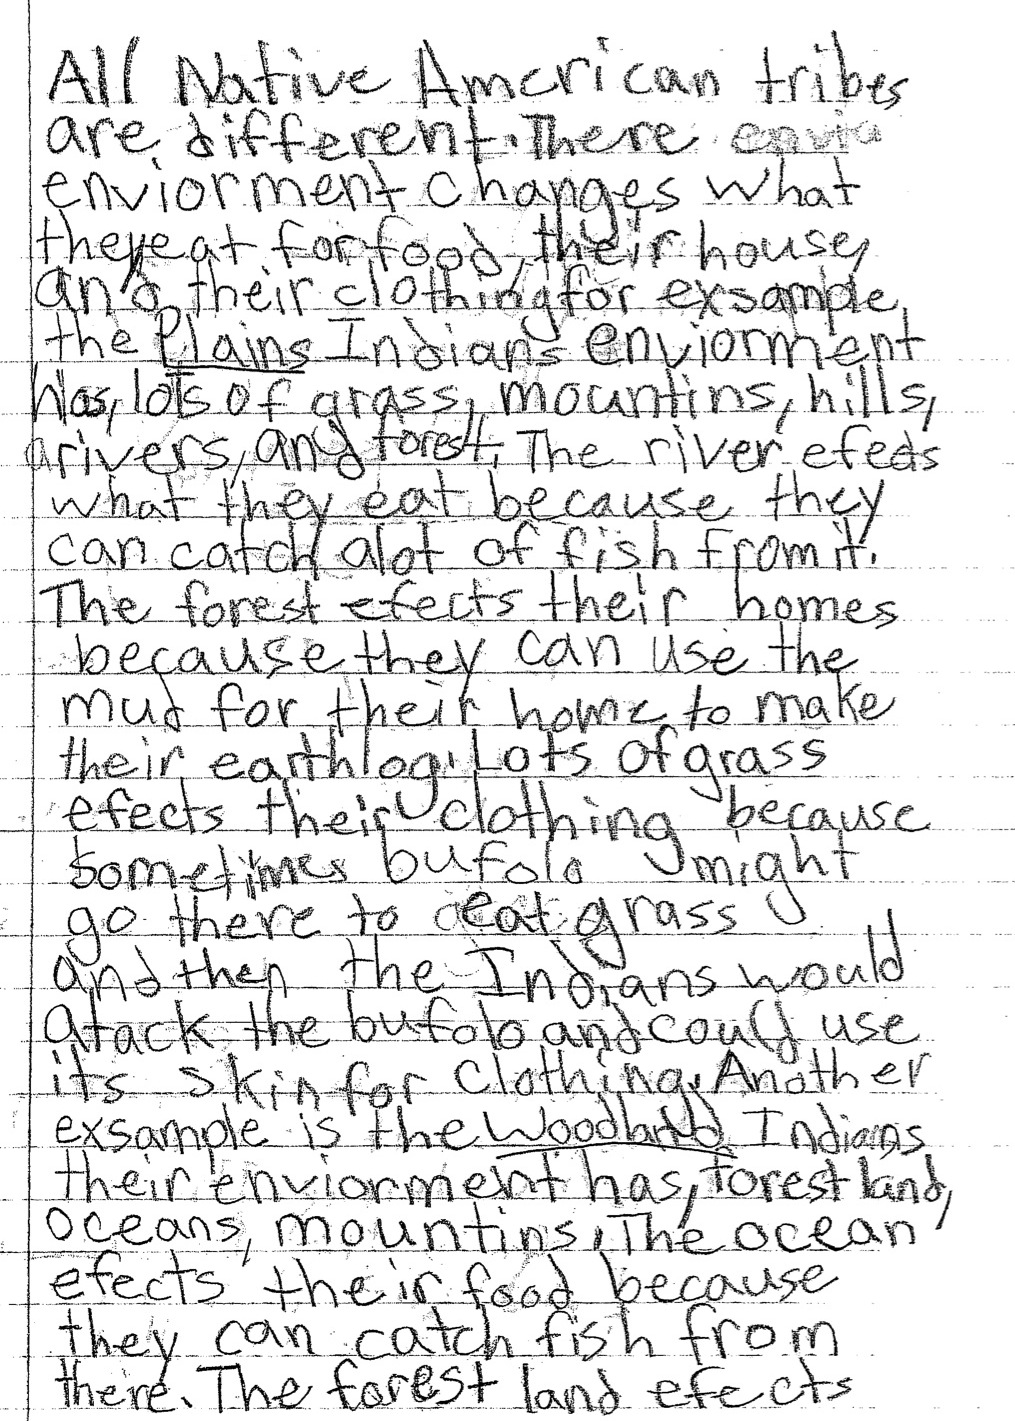 All Native American tribes
are different. There envio
enviorment changes what
they eat for food, their house,
and their clothing for exsample,
the Plains Indians enviorment
has, lots of grass, mountins, hills,
rivers, and forest. The river efects
what they eat because they
can catch alot of fish from it.
The forest efects their homes
because they can use the
mud for their home to make
their earthlog. Lots of grass
efects their clothing because
sometimes bufolo might
go there to eat grass
and then the Indians would
atack the bufolo and could use
its skin for clothing. Another
exsample is the Woodland Indians
their enviorment has, forest land,
oceans, mountins. The ocean
efects their food because
they can catch fish from
there. The forest land efects